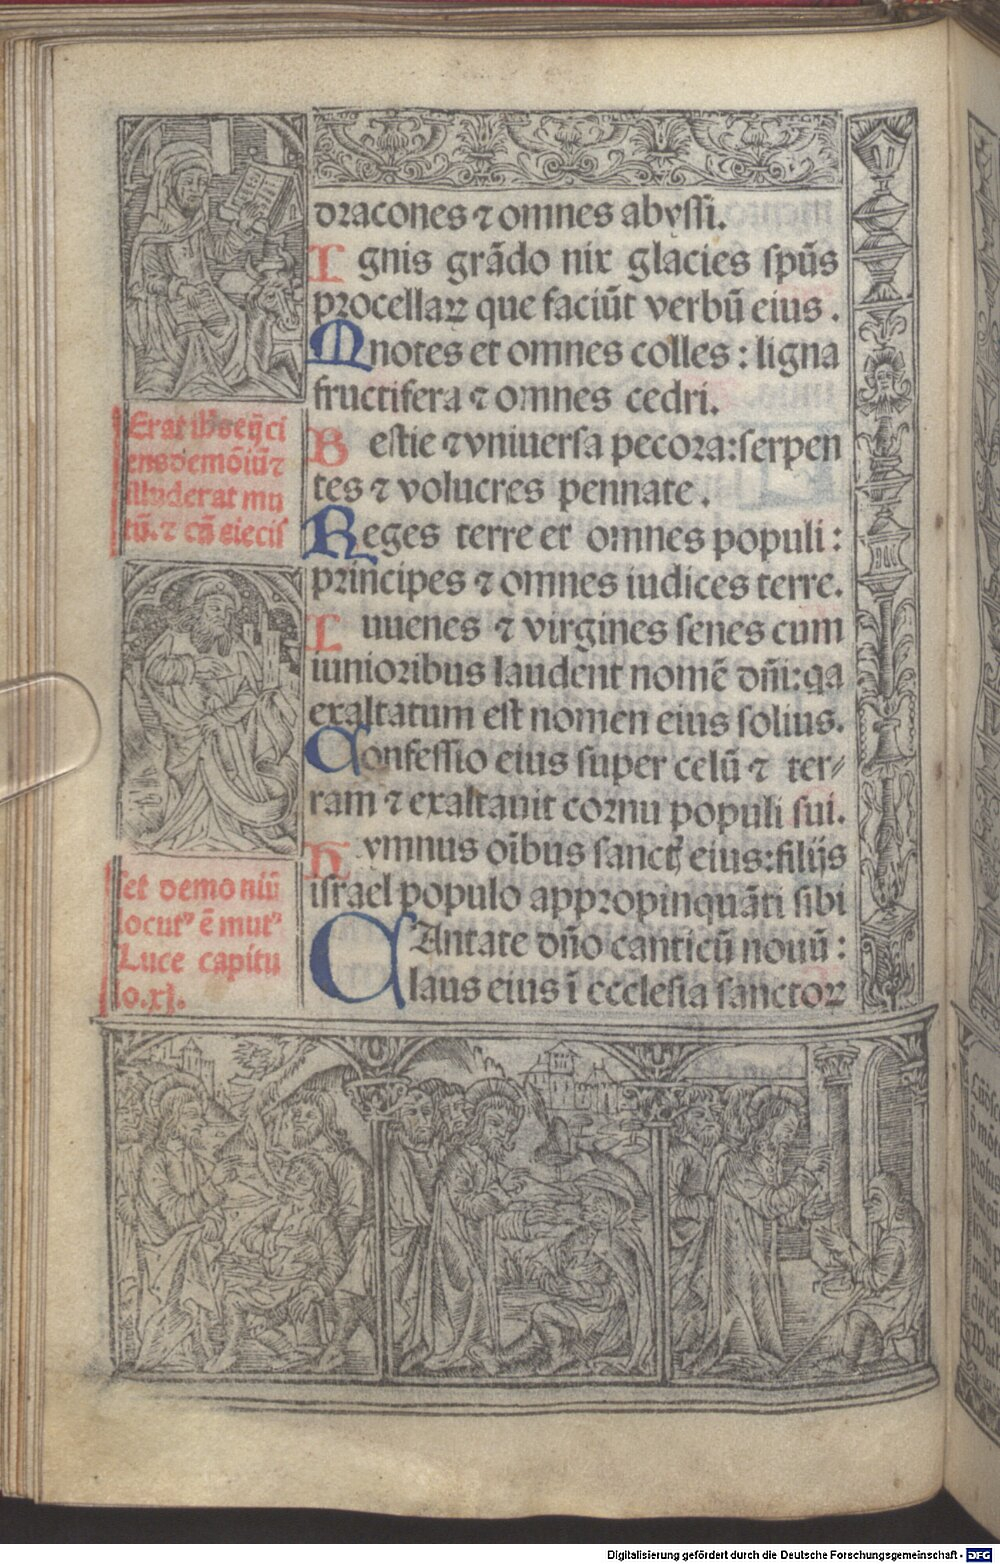 dracones ⁊ omnes abyssi.
Ignis grãdo nix glacies spũs
procellaꝝ que faciũt verbũ eius.
Mnotes et omnes colles: ligna
fructifera ⁊ omnes cedri.
Bestie ⁊ vniuersa pecora: serpen
tes ⁊ volucres pennate.
Reges terre et omnes populi:
principes ⁊ omnes iudices terre.
Iuuenes ⁊ virgines senes cum
iunioribus laudent nomẽ dñi: qa
exaltatum est nomen eius solius.
Confessio eius super celũ ⁊ ter⸗
ram ⁊ exaltauit cornu populi sui.
Hymnus oĩbus sanctꝭ eius: filijs
israel populo appropinquãti sibi
CAntate dño canticũ nouũ:
laus eius ĩ ecclesia sanctoꝝ
Erat ihs eijci
ens demõiũ ⁊
illud erat mu
tũ. ⁊ cũ eiecis
set demoniũ
locutꝰ ẽ mutꝰ
Luce capitu
lo.xj.
Digitalisierung gefördert durch die Deutsche Forschungsgemeinschaft - DFG